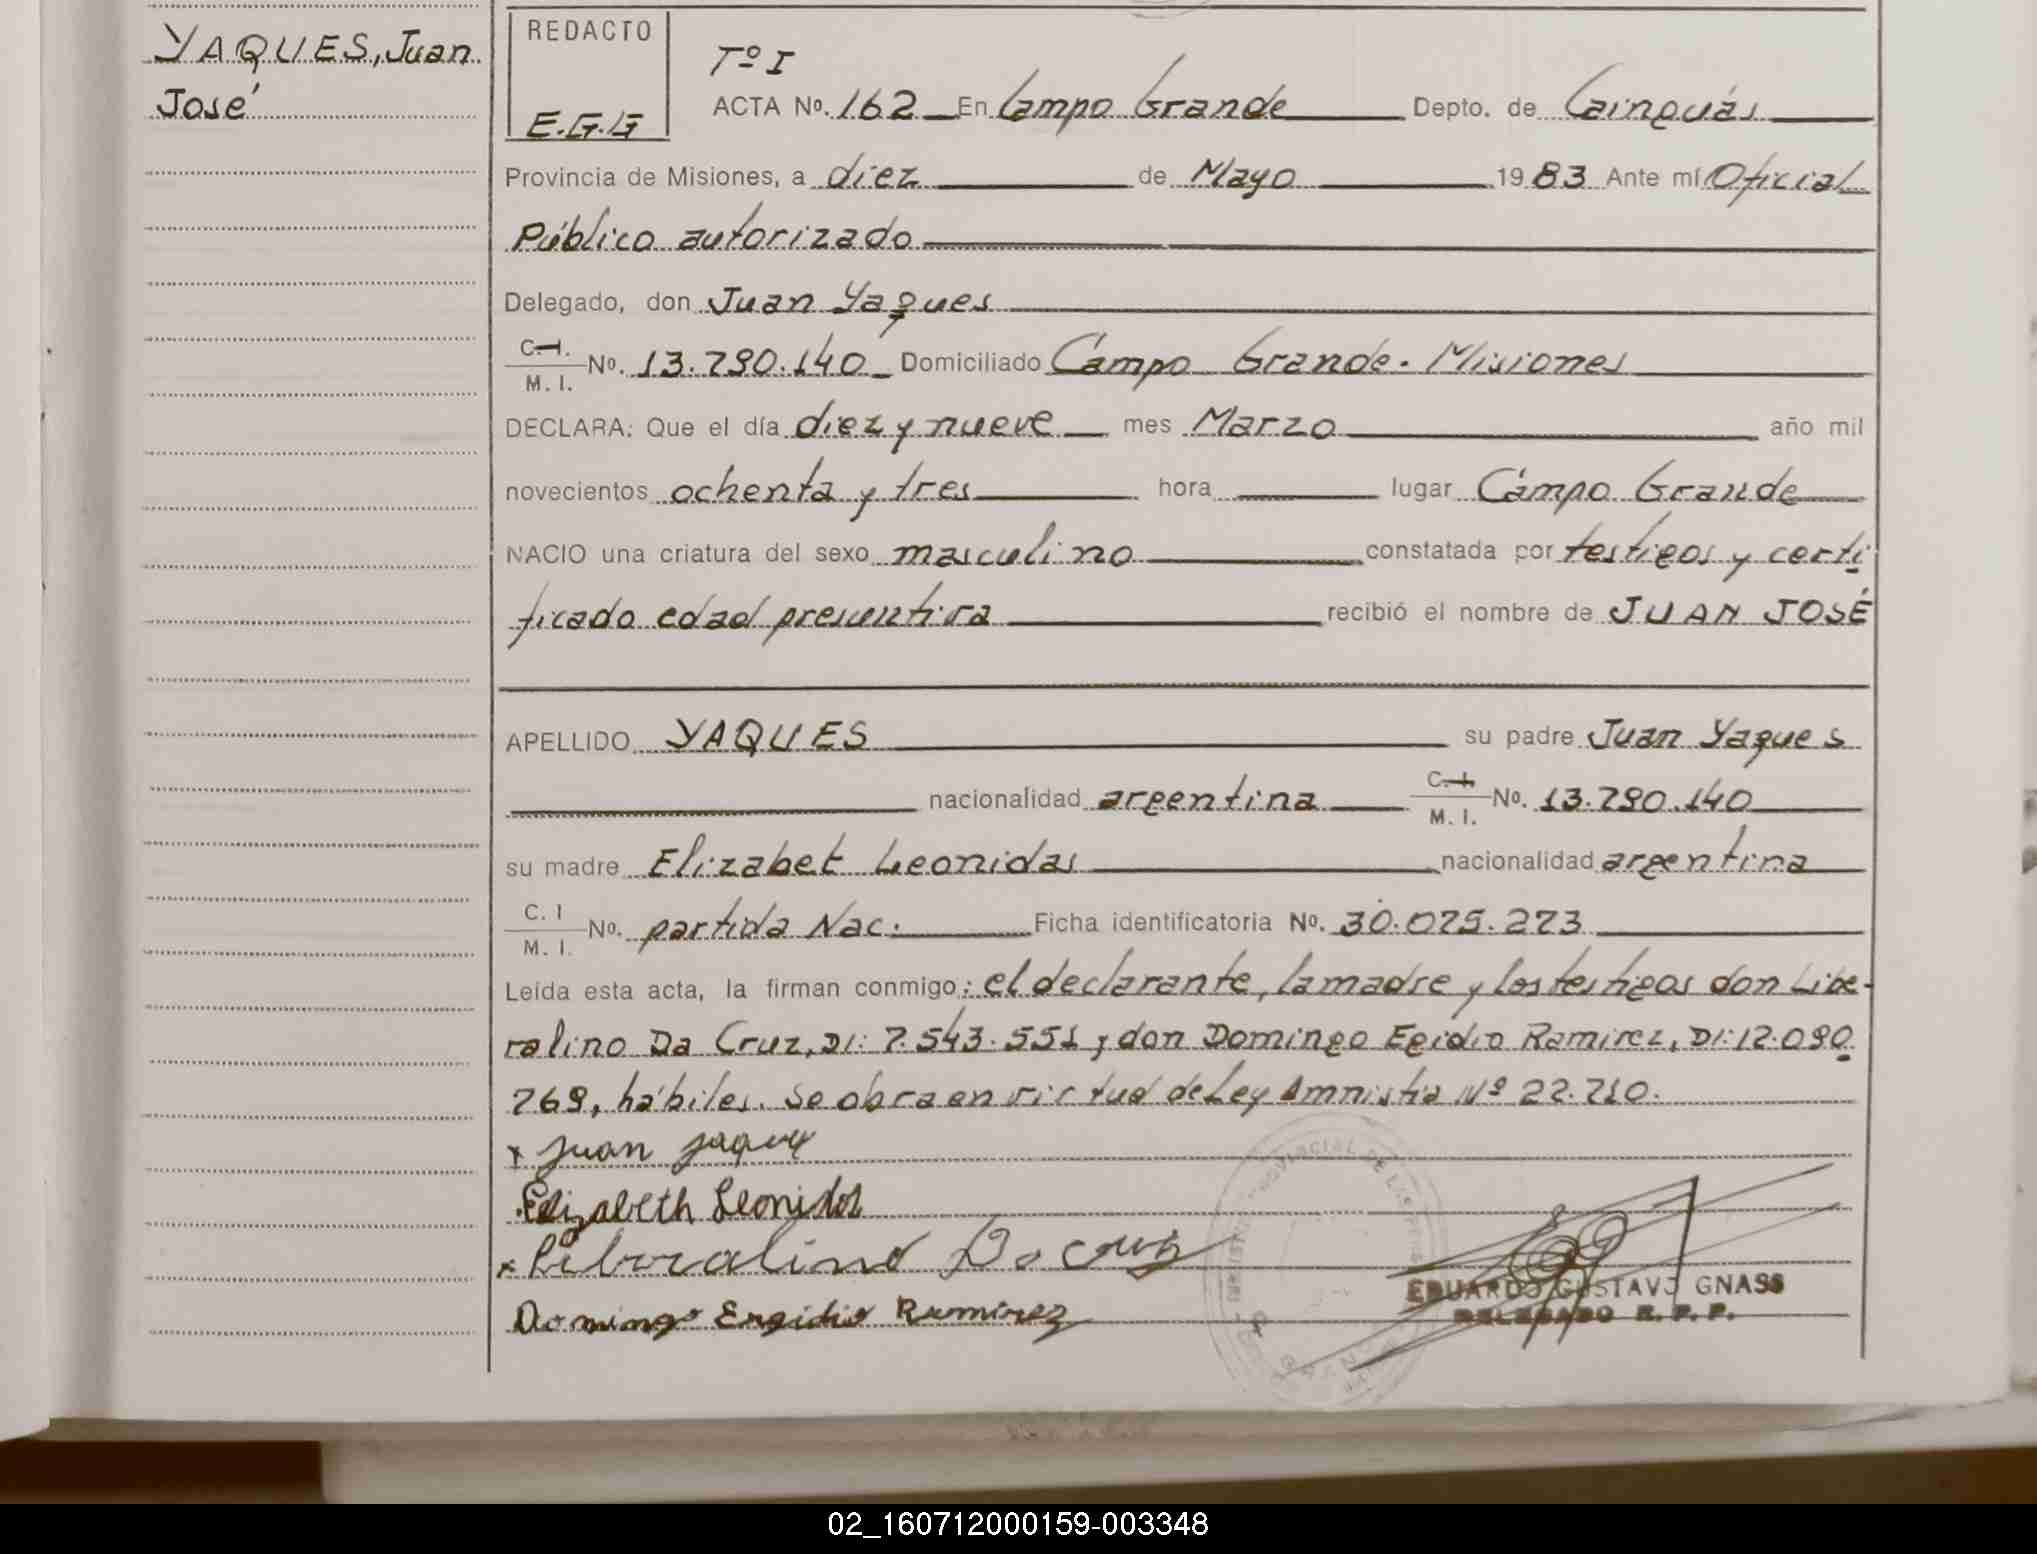 YAQUES, Juan
José
REDACTO
E.G.G
Tº I
ACTA Nº. 162 En Campo Grande Depto. de Cainguás
Provincia de Misiones, a diez de Mayo 1983 Ante mí Oficial
Público autorizado
Delegado, don Juan Yaques
C. I.
M. I. Nº. 13.790.140 Domiciliado Campo Grande - Misiones
DECLARA: Que el día diez y nueve mes Marzo año mil
novecientos ochenta y tres hora lugar Campo Grande
NACIO una criatura del sexo masculino constatada por testigos y certi
ficado edad presuntiva recibió el nombre de JUAN JOSÉ
APELLIDO YAQUES su padre Juan Yaques
nacionalidad argentina C. I. M. I. Nº. 13.790.140
su madre Elizabet Leonidas nacionalidad argentina
C. I M. I. Nº. partida Nac. Ficha identificatoria Nº. 30.075.273
Leída esta acta, la firman conmigo: el declarante, la madre y los testigos don Libe-
ralino Da Cruz, DI: 7.543.551 y don Domingo Egidio Ramirez, DI: 12.090
769, hábiles. Se obra en virtud de Ley Amnistía Nº 22.710.
x Juan Jaque
Elizabeth Leonidas
x Liberalino Da Cruz
Domingo Engidio Ramirez
EDUARDO GUSTAVO GNASS
DELEGADO R. P. P.
02_160712000159-003348